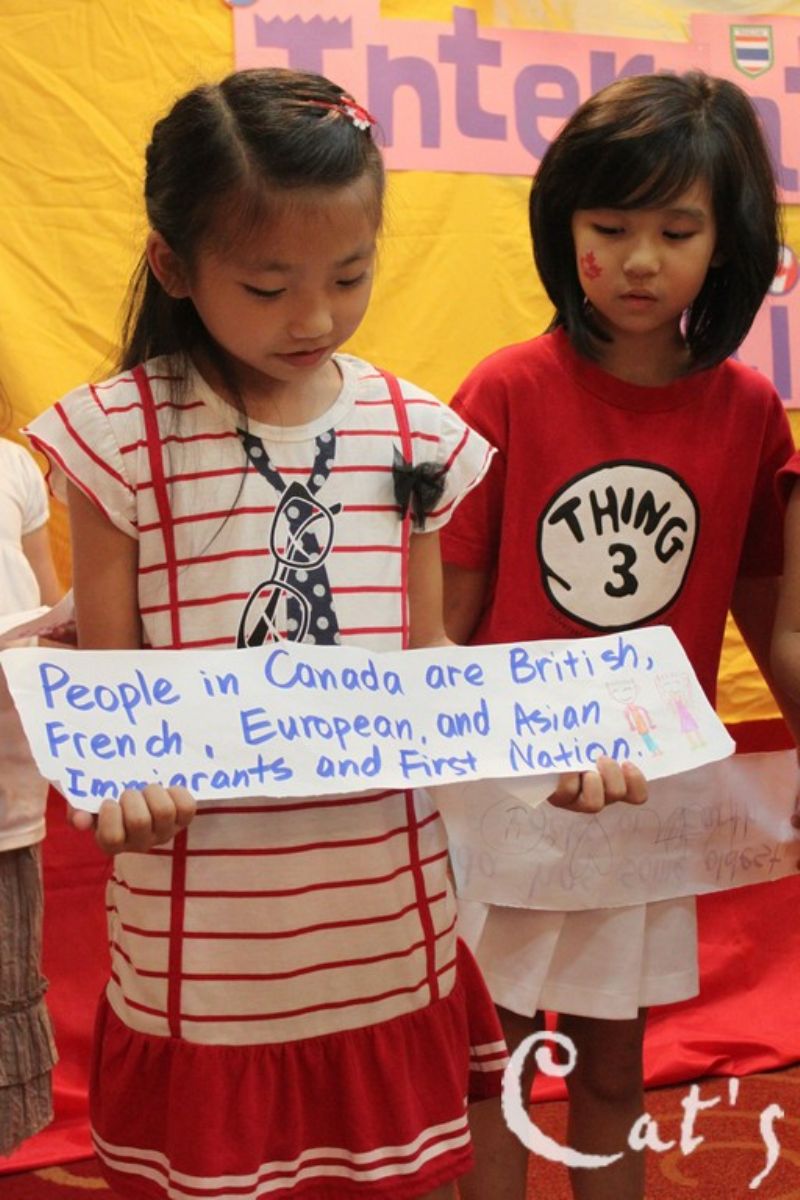 Internat
THING
3
People in Canada are British,
French, European, and Asian
Immigrants and First Nation.
Cat's